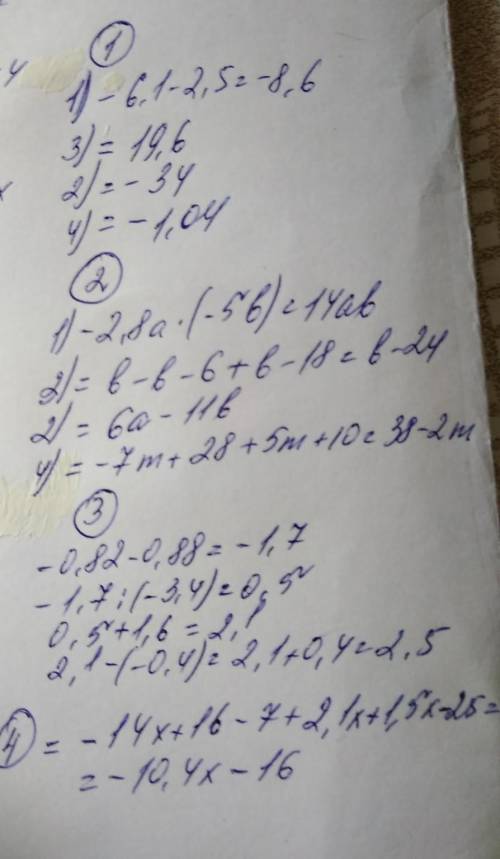 1
1) -6,1-2,5=-8,6
3) = 19,6
2) = -34
4) = -1,04
2
1) -2,8a·(-5b)=14ab
3) = b-b-6+b-18=b-24
2) = 6a-11b
4) = -7m+28+5m+10=38-2m
3
-0,82-0,88=-1,7
-1,7:(-3,4)=0,5
0,5+1,6=2,1
2,1-(-0,4)=2,1+0,4=2,5
4 = -14x+16-7+2,1x+1,5x-25=
= -10,4x-16